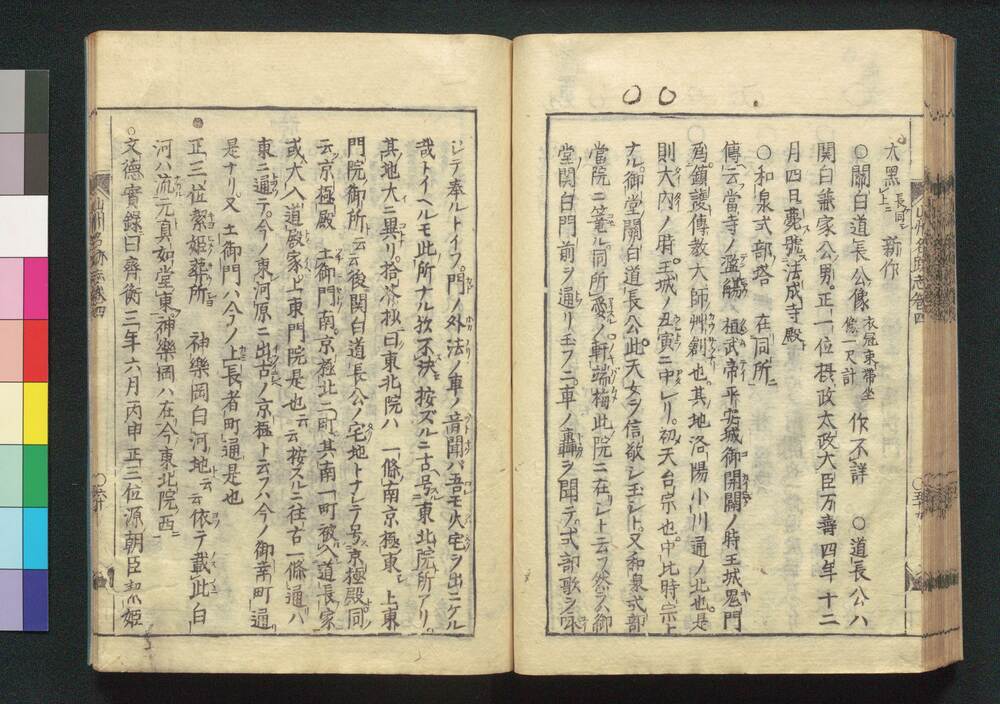 大黒 長同上ニ 新作
〇關白道長公像 衣冠束帶坐像一尺計 作不詳 〇道長公ハ
関白兼家公男。正一位摂政太政大臣万壽四年十二
月四日薨。號法成寺殿
〇和泉式部塔 在同所ニ
傳云當寺ノ濫觴 桓武帝平安城御開闢ノ時王城鬼門
爲鎮護傳教大師艸創也。其地洛陽小川通ノ北也。是
則大内ノ時。王城ノ丑寅ニ中レリ。初天台宗也。中比時宗上
ナル。御堂關白道長公。此天女ヲ信敬シ玉シト。又和泉式部
當院ニ篭ル。同所愛ノ軒端梅此院ニ在シト云フ。然ルニ御
堂関白門前ヲ通リ玉フニ。車ノ轟ヲ聞テ。式部歌ヲ詠
シテ奉ルトイフ。門ノ外法ノ車ノ音聞バ吾モ火宅ヲ出ニケル
哉トイヘルモ此所ナル歟不決 按ズルニ古号東北院所アリ。
其地大ニ異リ。拾芥抄曰東北院ハ 一條南京極東 上東
門院御所 云云 後関白道長公ノ宅地トナレテ号京極殿同
云京極殿 土御門南。京極北二町其南一町被入道長家
或大入道殿家。上東門院是也 云云 按スルニ往古一條通ハ
東ニ通テ。今ノ東河原ニ出古ノ京極ト云フハ今ノ御幸町通
是ナリ。又土御門ハ今ノ上長者町通是也
正三位絜姫葬所 神樂岡白河地ト云云 依テ載此白
河ハ流元真如堂東。神樂岡ハ在今東北院西ニ
文徳實録曰齊衡三年六月丙申正三位源朝臣絜姫
山州名跡志巻四